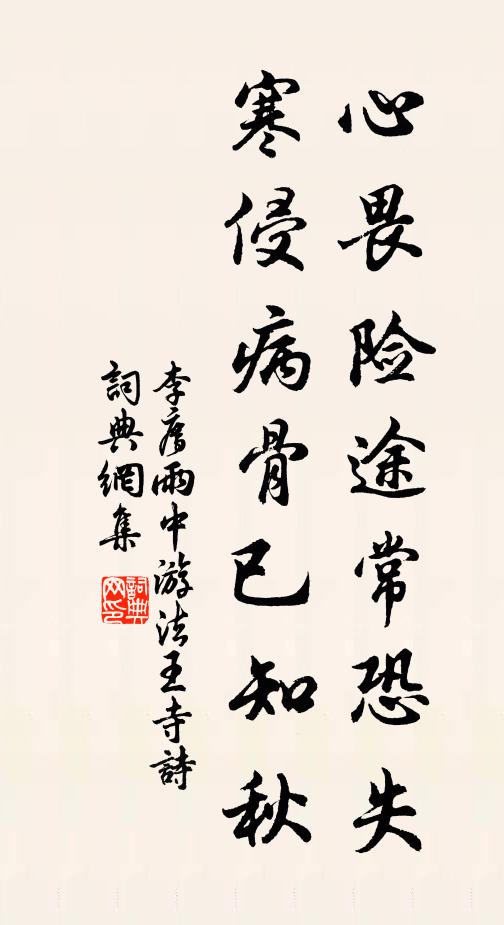 心畏险途常恐失
寒侵病骨已知秋
李廌雨中游法王寺詩
詞典網集
詞典网印